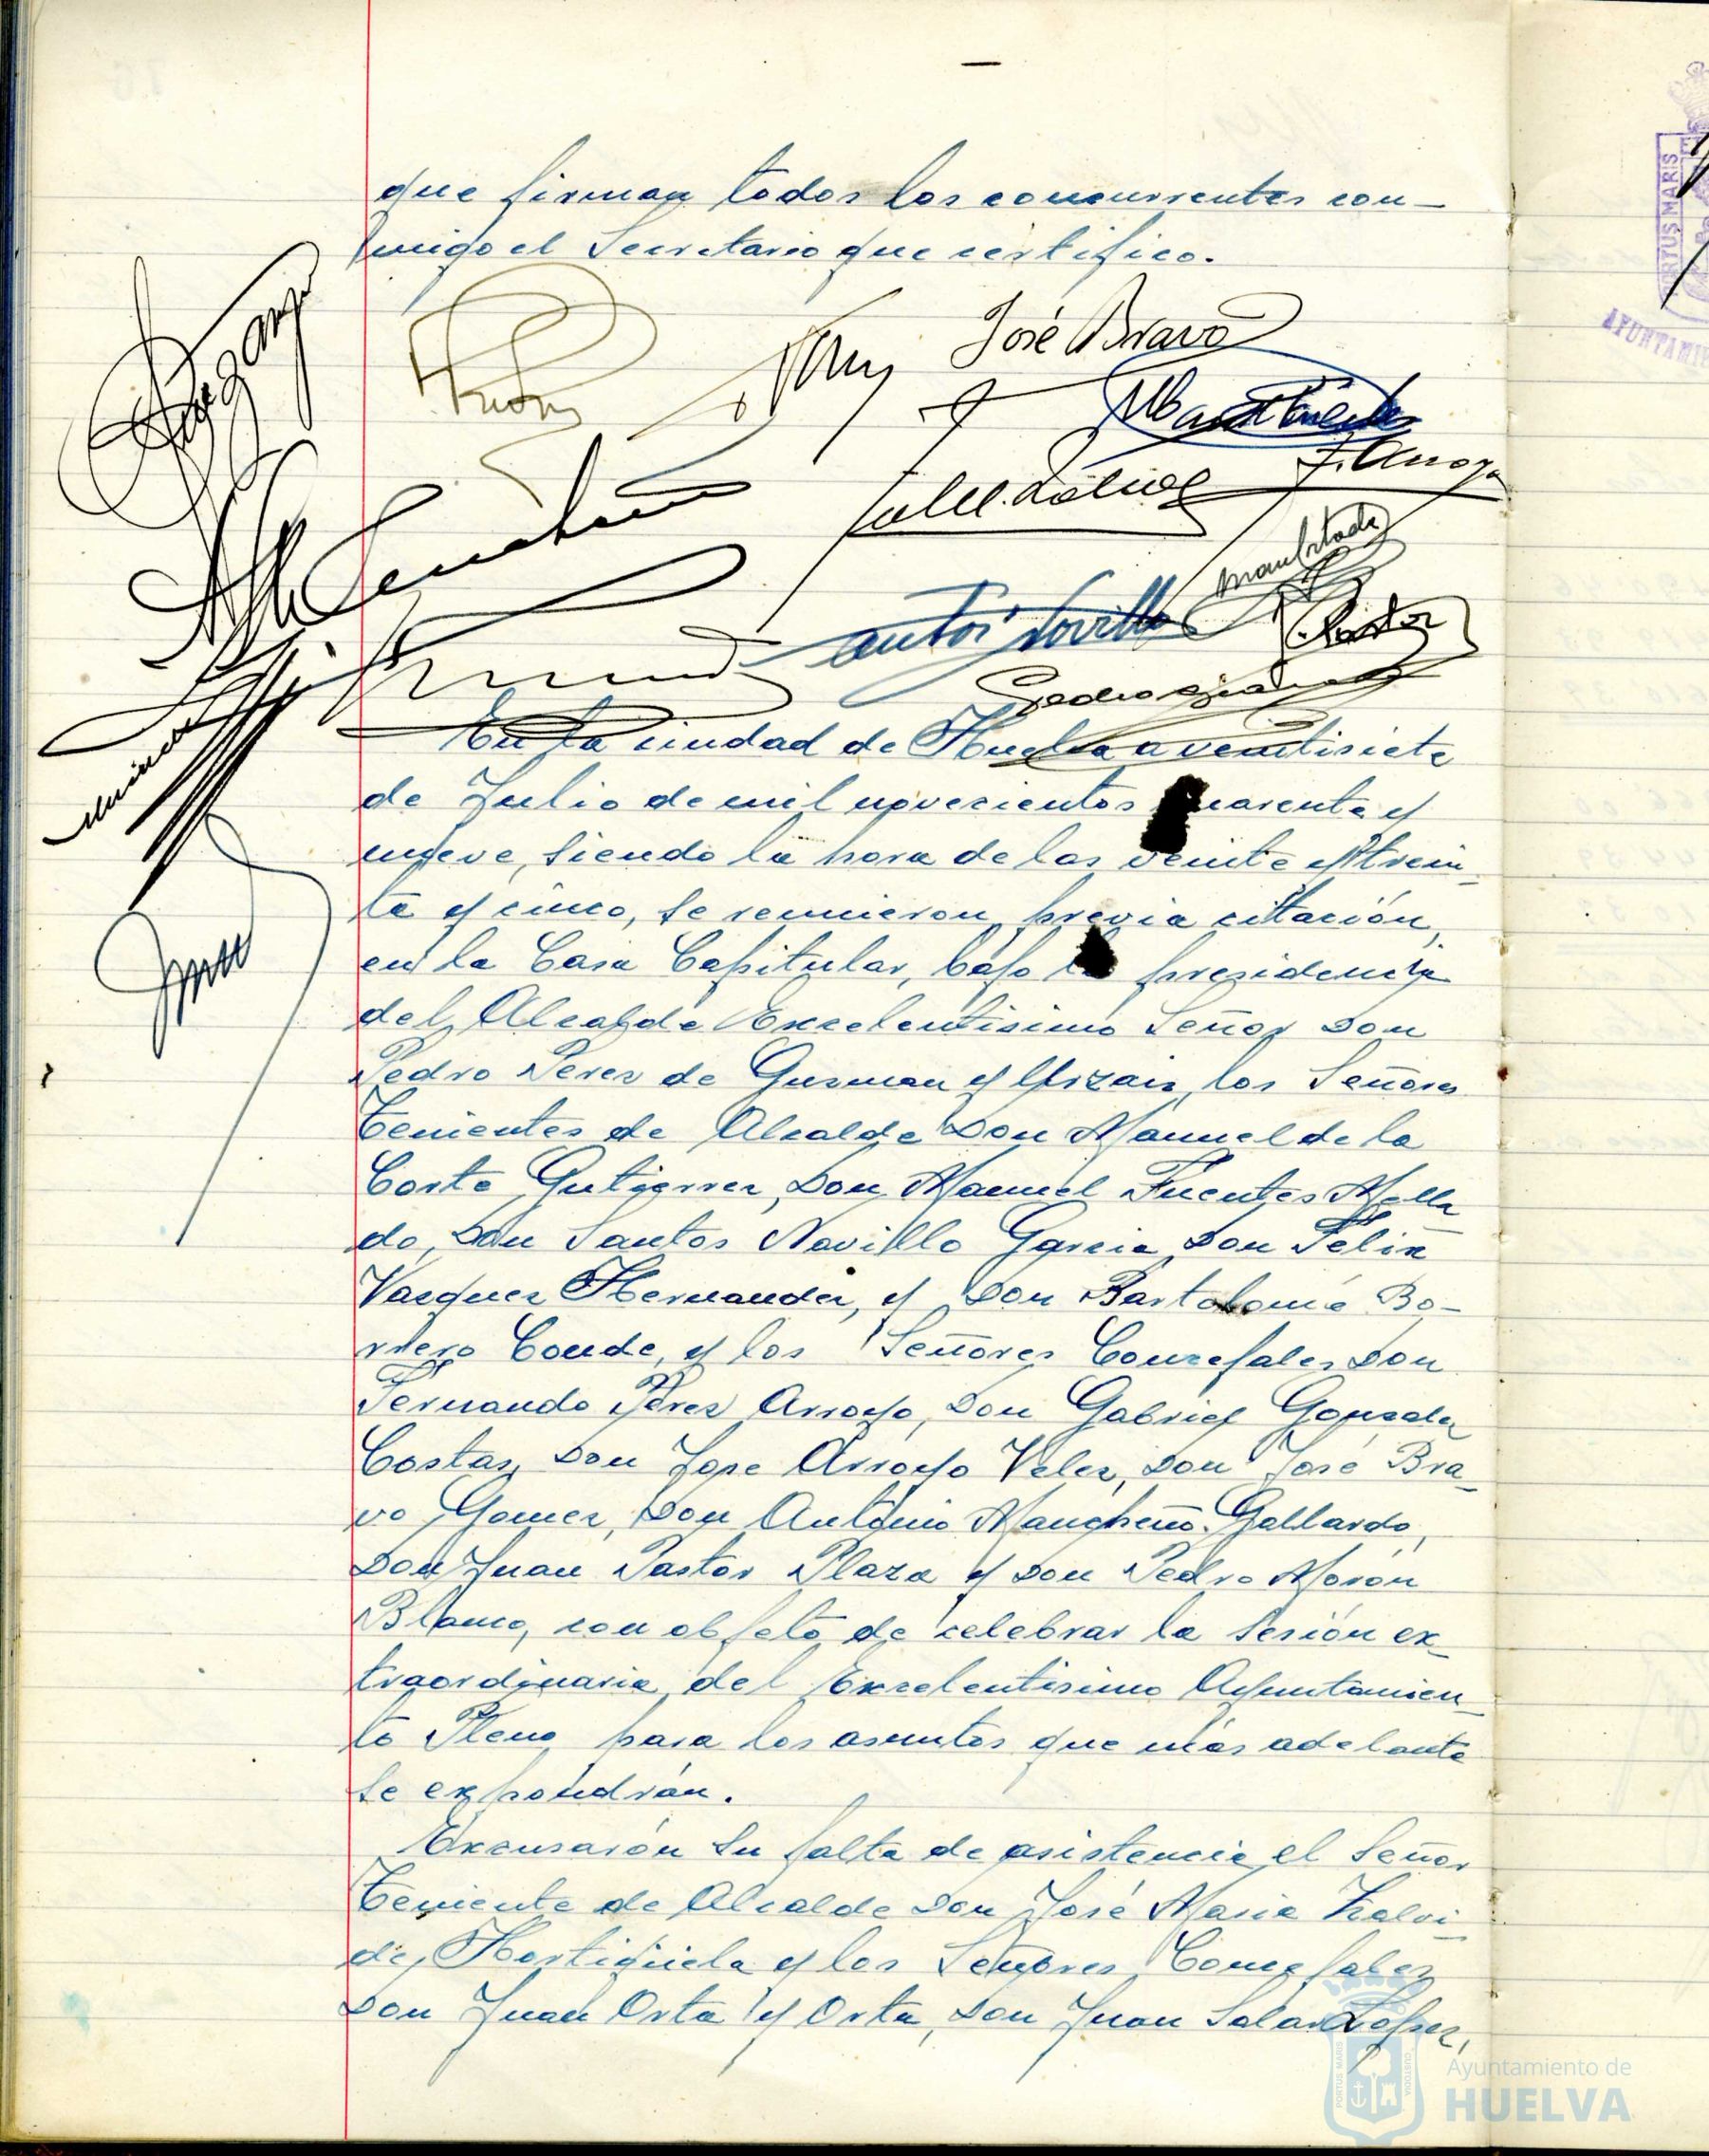 que firman todos los concurrentes con-
migo el Secretario que certifico.
José Bravo
F. Arroyo
Pastor
En la ciudad de Huelva a veintisiete
de Julio de mil novecientos cuarenta y
nueve, siendo la hora de las veinte y trein-
ta y cinco, se reunieron, previa citación,
en la Casa Capitular, bajo la presidencia
del Alcalde Excelentisimo Señor Don
Pedro Perez de Guzman y Urzaiz, los Señores
Tenientes de Alcalde Don Manuel de la
Corte Gutierrez, Don Manuel Fuentes Mella
do, Don Santos Novillo Garcia, Don Felix
Vazquez Hernandez, y Don Bartolomé Bo-
rrero Conde, y los Señores Concejales Don
Fernando Perez Arroyo, Don Gabriel Gonzalez
Costas, Don Jose Arroyo Velez, Don José Bra-
vo Gomez, Don Antonio Mancheño Gallardo,
Don Juan Pastor Plaza y Don Pedro Morón
Blanco, con objeto de celebrar la sesión ex-
traordinaria del Excelentisimo Ayuntamien-
to Pleno para los asuntos que más adelante
se expondrán.
Excusarón su falta de asistencia el Señor
Teniente de Alcalde Don José Maria Zalvi-
de, Hortigüela y los Señores Concejales
Don Juan Orta y Orta, Don Juan Salas Lopez,
PORTUS MARIS
Ayuntamiento de
HUELVA